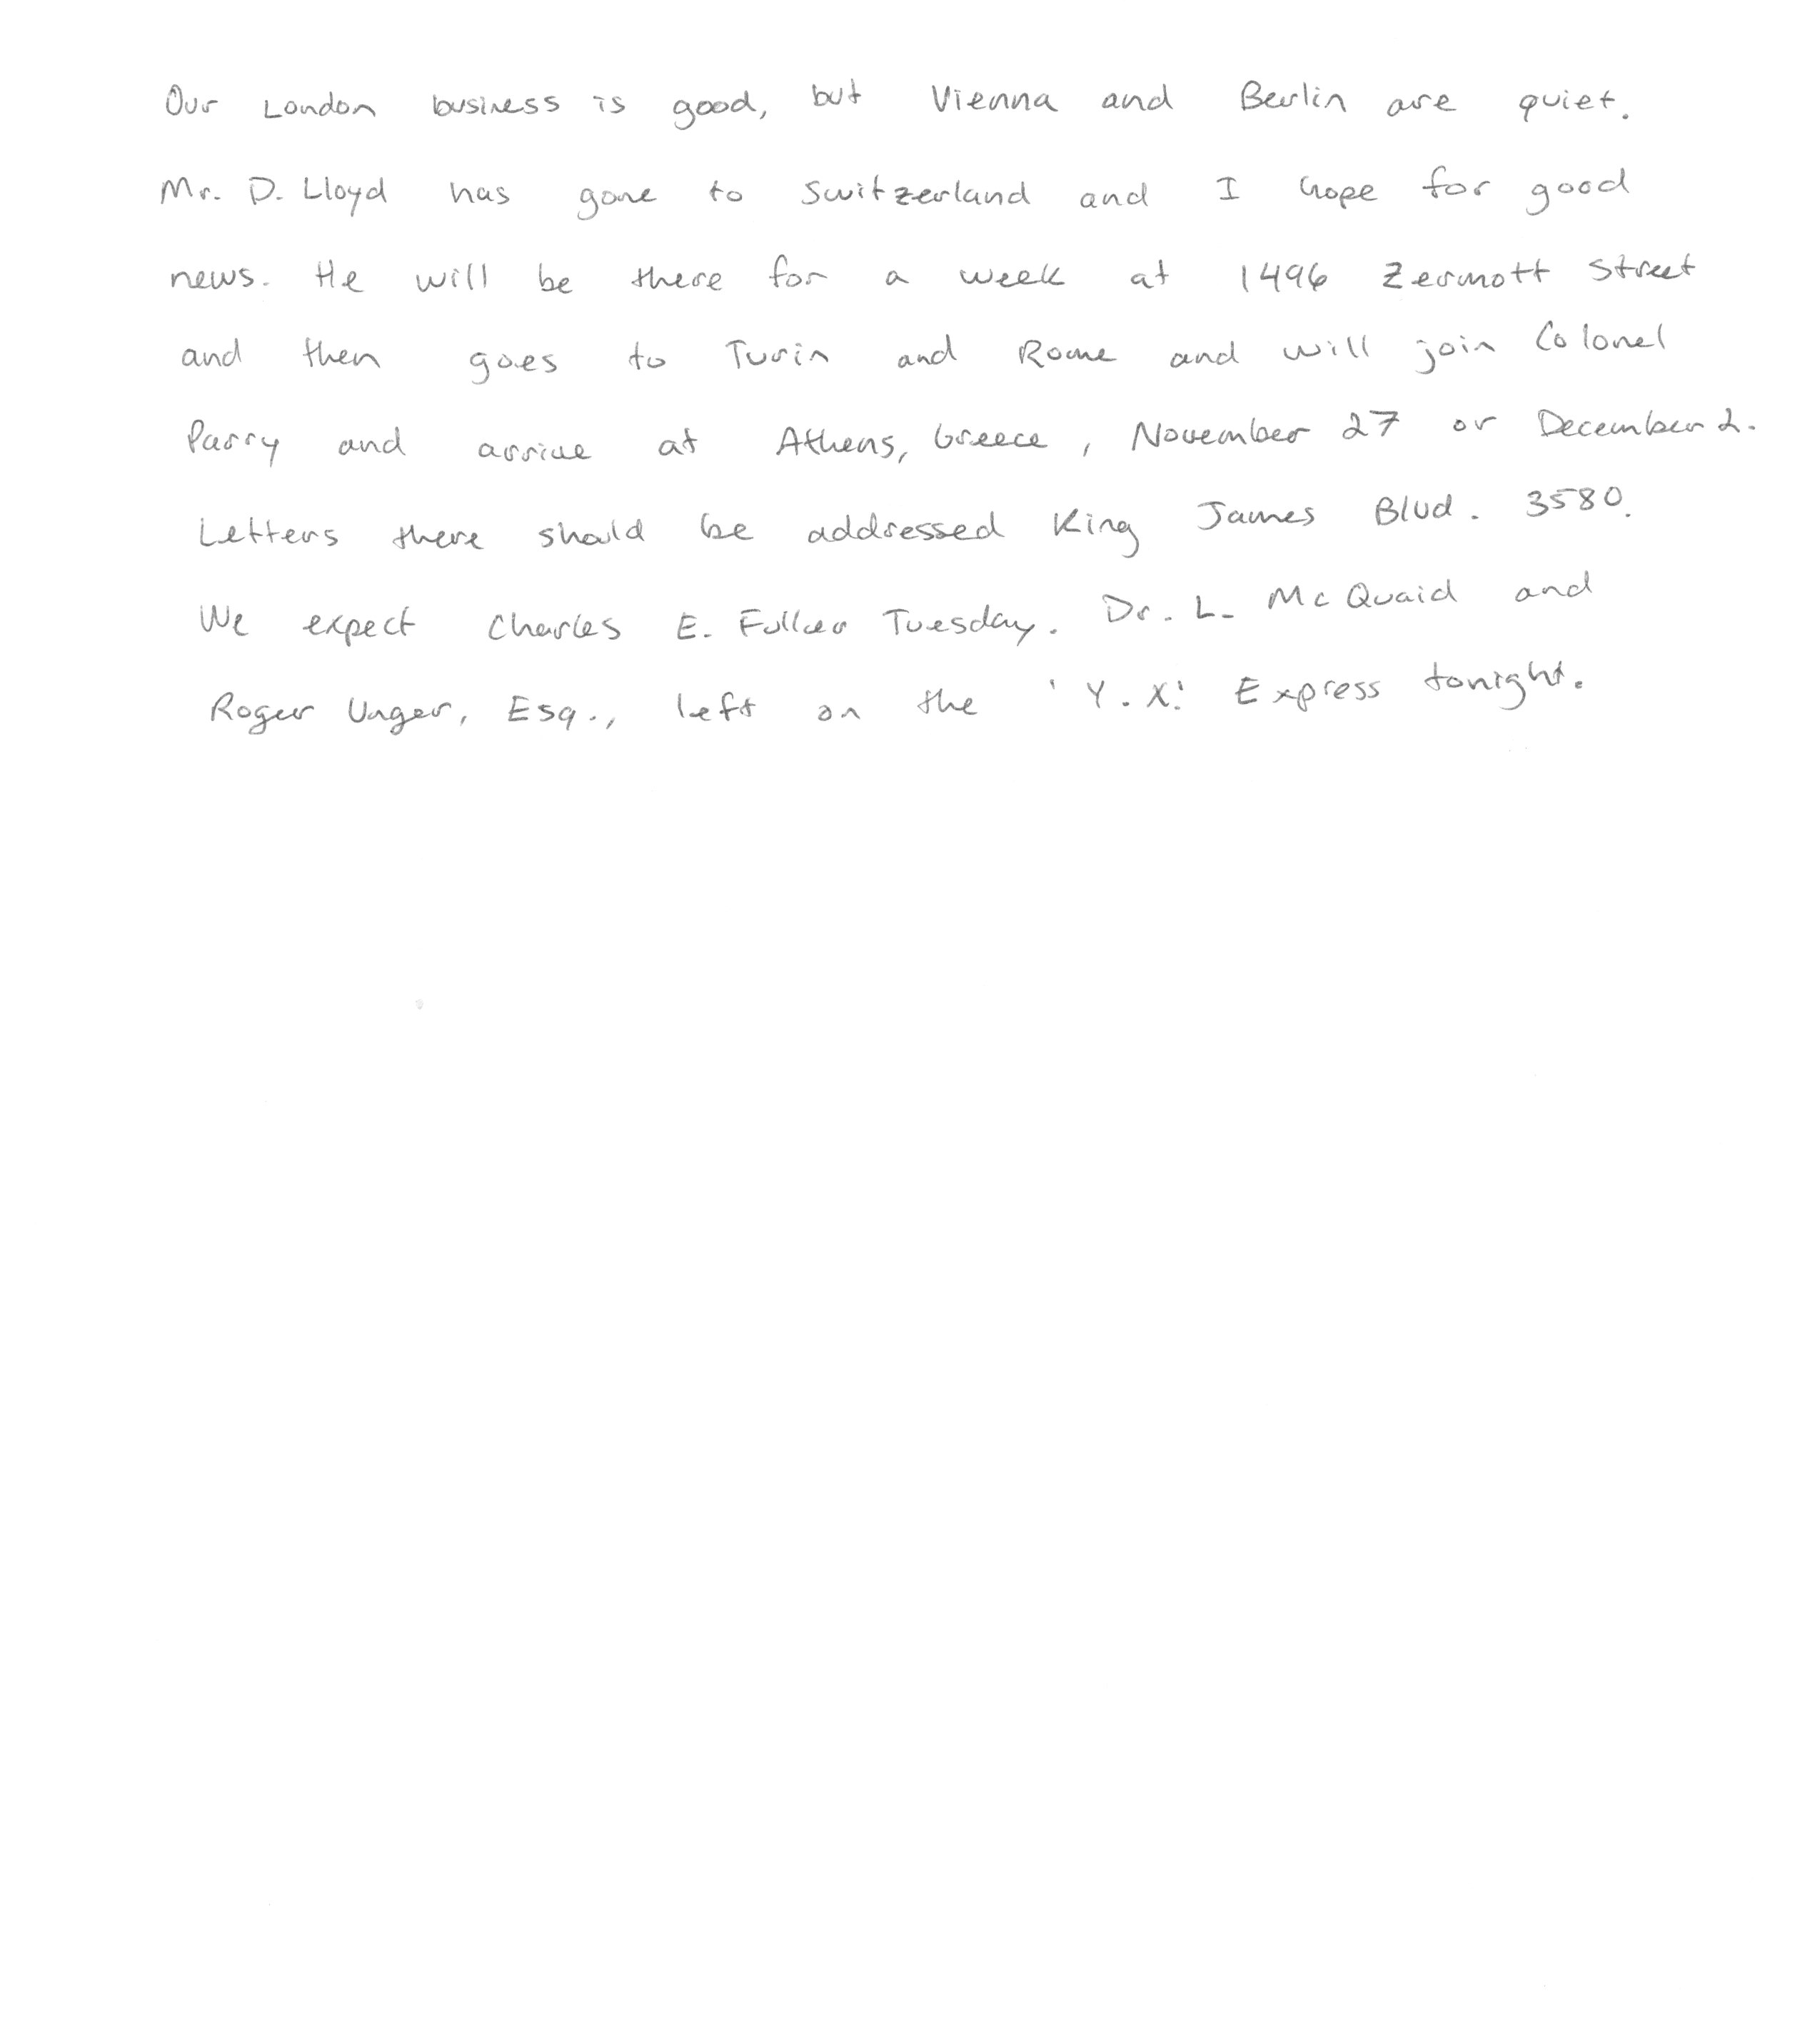 Our London business is good, but Vienna and Berlin are quiet.
Mr. D. Lloyd has gone to Switzerland and I hope for good
news. He will be there for a week at 1496 Zermott Street
and then goes to Turin and Rome and will join Colonel
Parry and arrive at Athens, Greece, November 27 or December 2.
Letters there should be addressed King James Blvd. 3580.
We expect Charles E. Fuller Tuesday. Dr. L. McQuaid and
Roger Unger, Esq., left on the 'Y.X.' Express tonight.